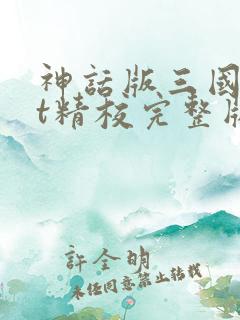 神話版三國
t精校完整版
許全明
未經同意禁止轉載